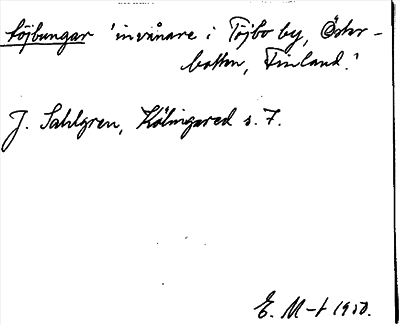 töjbungar 'invånare i Töjbo by, Öster-
botten, Finland.'
J. Sahlgren, Kölingared s. 7.
E. M-t 1950.